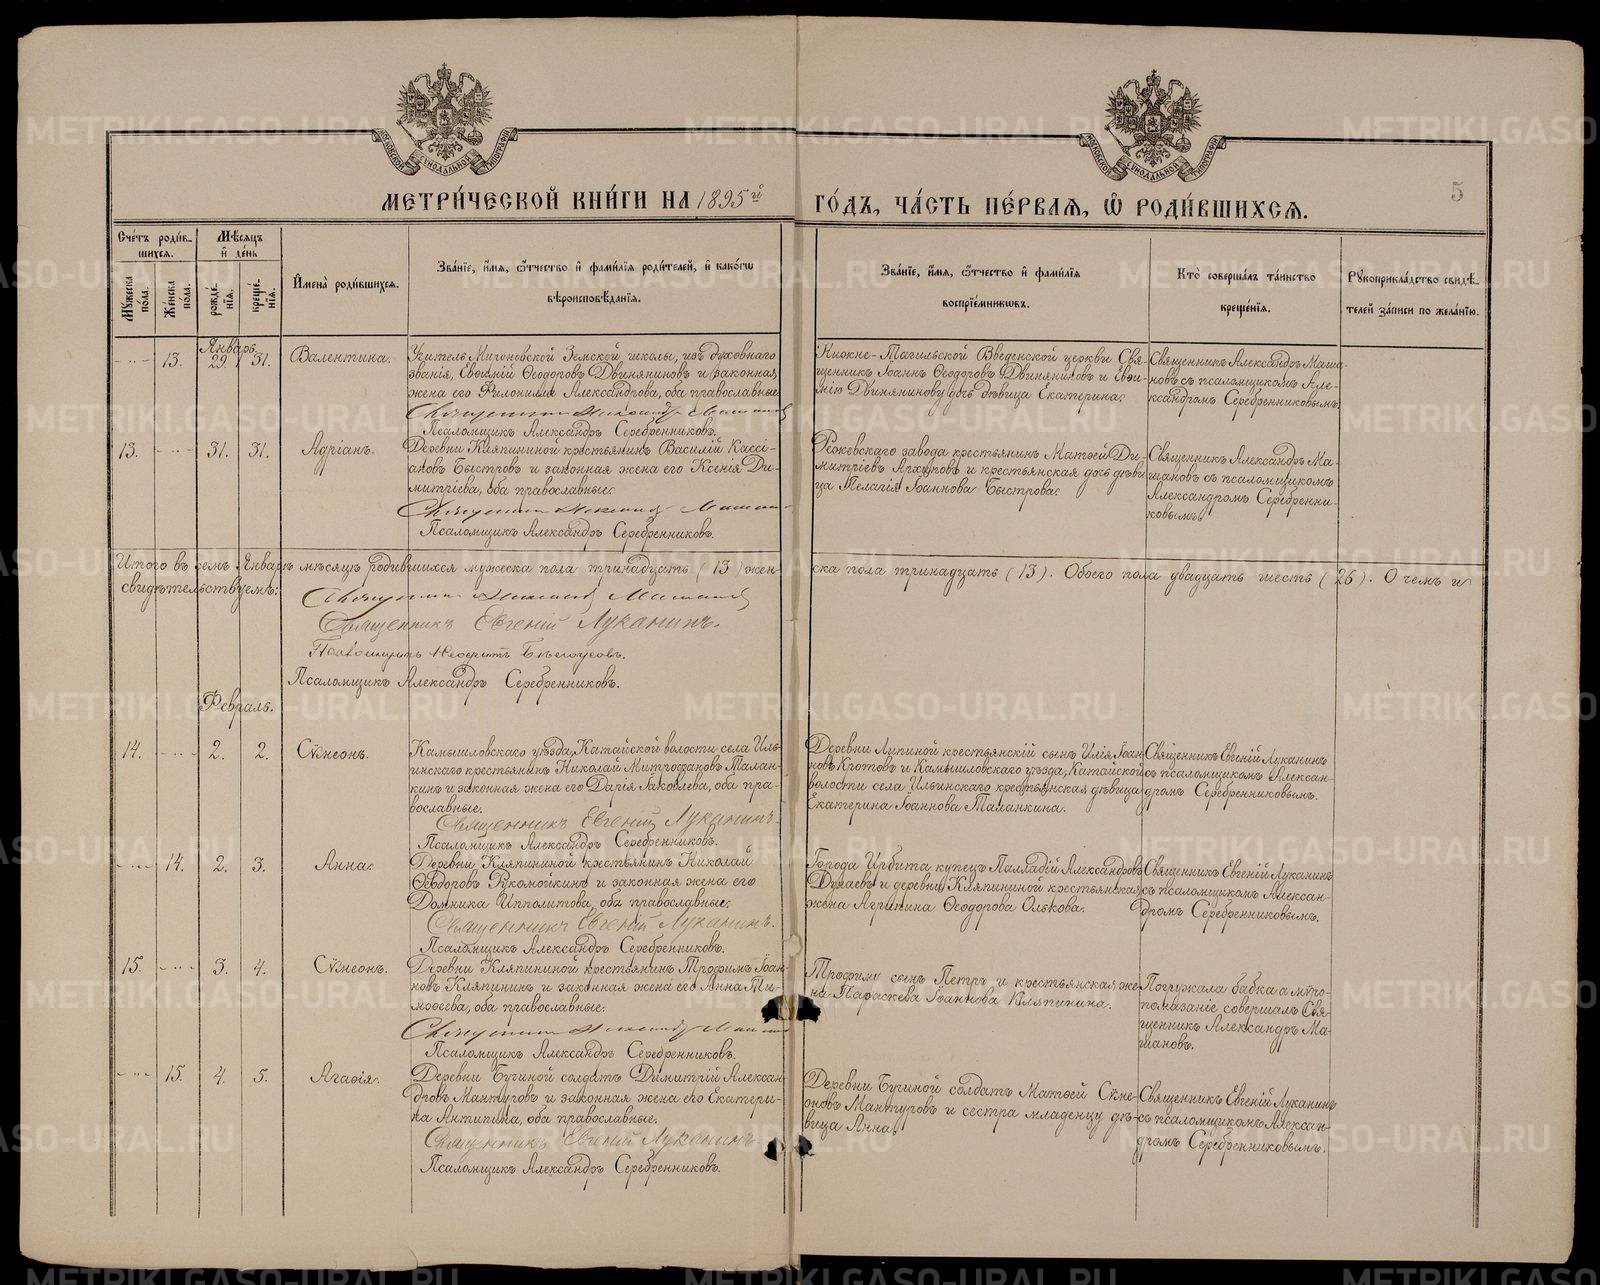 МОСКОВСКОЙ СѴНОДАЛЬНОЙ ТИПОГРАФІИ
МОСКОВСКОЙ СѴНОДАЛЬНОЙ ТИПОГРАФІИ
5
МЕТРИ́ЧЕСКОЙ КНИ́ГИ НА 1895й
ГО́ДЪ, ЧА́СТЬ ПЕ́РВАЯ, Ѡ҆ РОДИ́ВШИХСЯ.
Сче́тъ роди́в-
шихся.
Мꙋ́жеска по́ла.
Же́нска по́ла.
Мѣ́сяцъ
и҆ де́нь
рожде́нїя.
креще́нїя.
И҆мена̀ роди́вшихся.
Зва́нїе, и҆́мя, ѻ҆́тчество и҆ фами́лїя роди́телей, и҆ како́гѡ
вѣроисповѣ́данїя.
Зва́нїе, и҆́мя, ѻ҆́тчество и҆ фами́лїя
воспрїе́мникѡвъ.
Кто̀ соверша́лъ та́инство
креще́нїя.
Рꙋкоприкла́дство свидѣ́-
телей за́писи по жела́нїю.
Январь.
13. 29. 31. Валентина.
Учитель Мироновской Земской школы, изъ духовнаго
званія, Евѳимій Ѳеодоровъ Двиняниновъ и законная
жена его Филонилла Александрова, оба православные.
Священникъ Александръ Машановъ
Псаломщикъ Александръ Серебренниковъ.
Нижне-Тагильской Введенской церкви Свя-
щенникъ Іоаннъ Ѳеодоровъ Двиняниновъ и Евѳи-
мію Двинянинову дочь дѣвица Екатерина.
Священникъ Александръ Маша-
новъ съ псаломщикомъ Але-
ксандромъ Серебренниковымъ.
13. 31. 31. Адріанъ.
Деревни Кляпининой крестьянинъ Василій Кассі-
ановъ Быстровъ и законная жена его Ксенія Ди-
митріева, оба православные.
Священникъ Александръ Машановъ
Псаломщикъ Александръ Серебренниковъ.
Режевскаго завода крестьянинъ Матѳей Ди-
митріевъ Архиповъ и крестьянская дочь дѣви-
ца Пелагія Іоаннова Быстрова.
Священникъ Александръ Ма-
шановъ съ псаломщикомъ
Александромъ Серебренни-
ковымъ.
Итого въ семъ Январѣ мѣсяцѣ родившихся мужеска пола тринадцать (13) жен-
ска пола тринадцать (13). Обоего пола двадцать шесть (26). О чемъ и
свидѣтельствуемъ:
Священникъ Александръ Машановъ
Священникъ Евгеній Луканинъ.
Псаломщикъ Неофитъ Бѣлоусовъ.
Псаломщикъ Александръ Серебренниковъ.
Февраль.
14. 2. 2. Сѵмеонъ.
Камышловскаго уѣзда, Катайской волости села Иль-
инскаго крестьянинъ Николай Митрофановъ Талан-
кинъ и законная жена его Дарія Іаковлева, оба пра-
вославные.
Священникъ Евгеній Луканинъ.
Псаломщикъ Александръ Серебренниковъ.
Деревни Липиной крестьянскій сынъ Илія Іоан-
новъ Кротовъ и Камышловскаго уѣзда, Катайской
волости села Ильинскаго крестьянская дѣвица
Екатерина Іоаннова Таланкина.
Священникъ Евгеній Луканинъ
съ псаломщикомъ Алексан-
дромъ Серебренниковымъ.
14. 2. 3. Анна.
Деревни Кляпининой крестьянинъ Николай
Ѳеодоровъ Рукомойкинъ и законная жена его
Домника Ипполитова, оба православные.
Священникъ Евгеній Луканинъ.
Псаломщикъ Александръ Серебренниковъ.
Города Ирбита купецъ Палладій Александровъ
Дунаевъ и деревни Кляпининой крестьянская
жена Агрипина Ѳеодорова Олькова.
Священникъ Евгеній Луканинъ
съ псаломщикомъ Алексан-
дромъ Серебренниковымъ.
15. 3. 4. Сѵмеонъ.
Деревни Кляпининой крестьянинъ Трофимъ Іоан-
новъ Кляпининъ и законная жена его Анна Ти-
моѳеева, оба православные.
Священникъ Александръ Машановъ
Псаломщикъ Александръ Серебренниковъ.
Трофиму сынъ Петръ и крестьянская же-
на Параскева Іоаннова Кляпинина.
Погружала бабка а мѵро-
помазаніе совершалъ Свя-
щенникъ Александръ Ма-
шановъ.
15. 4. 5. Агаѳія.
Деревни Бучиной солдатъ Димитрій Алексан-
дровъ Мантуровъ и законная жена его Екатери-
на Антипина, оба православные.
Священникъ Евгеній Луканинъ.
Псаломщикъ Александръ Серебренниковъ.
Деревни Бучиной солдатъ Матѳей Сѵме-
оновъ Мантуровъ и сестра младенцу дѣ-
вица Анна.
Священникъ Евгеній Луканинъ
съ псаломщикомъ Алексан-
дромъ Серебренниковымъ.
METRIKI.GASO-URAL.RU